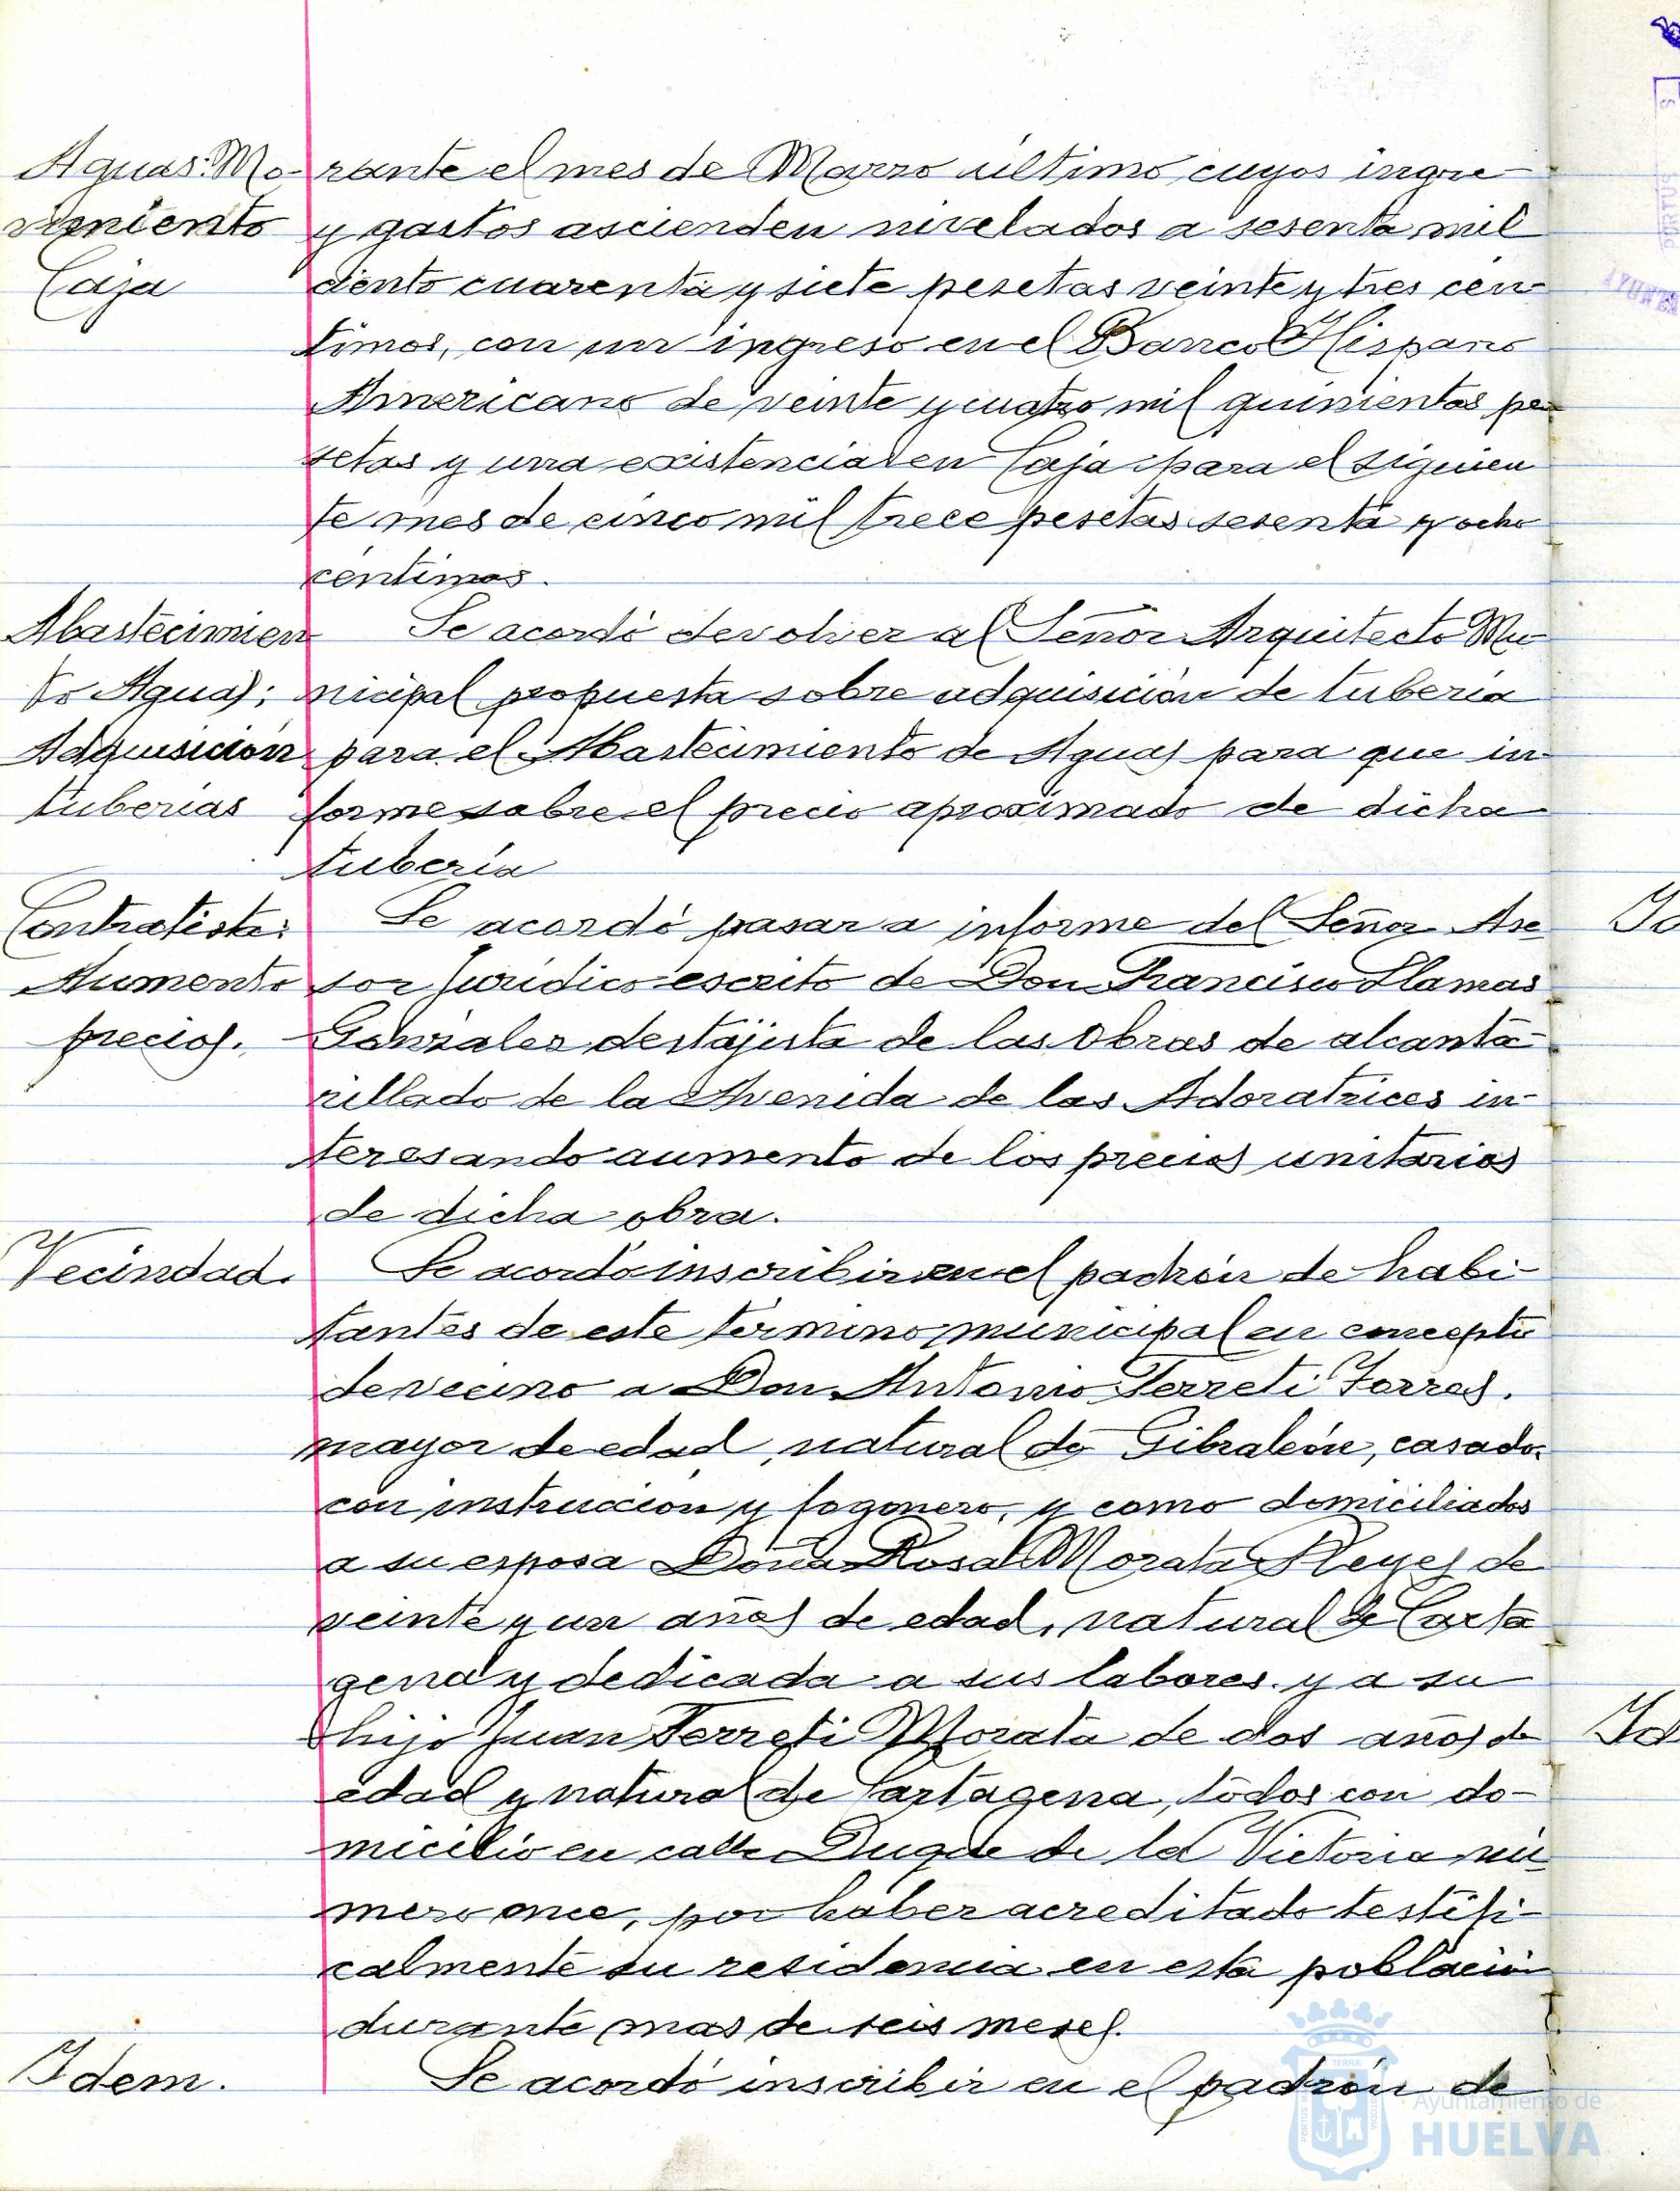 Aguas: Mo-
vimiento
Caja
rante el mes de Marzo último, cuyos ingre-
y gastos ascienden nivelados a sesenta mil
ciento cuarenta y siete pesetas veinte y tres cén-
timos, con un ingreso en el Banco Hispano
Americano de veinte y cuatro mil quinientas pe-
setas y una existencia en Caja para el siguien
te mes de cinco mil trece pesetas sesenta y ocho
céntimos.
Abastecimien
to Aguas;
Adquisición
tuberías
Se acordó devolver al Señor Arquitecto Mu-
nicipal propuesta sobre adquisición de tubería
para el Abastecimiento de Aguas para que in-
forme sobre el precio aproximado de dicha
tubería
Contratista:
Aumento
precios.
Se acordó pasar a informe del Señor Ase-
sor Jurídico escrito de Don Francisco Llamas
Gonzalez destajista de las Obras de alcanta-
rillado de la Avenida de las Adoratrices in-
teresando aumento de los precios unitarios
de dicha obra.
Vecindad.
Se acordó inscribir en el padrón de habi-
tantes de este término municipal en concepto
de vecino a Don Antonio Ferreti Torres,
mayor de edad, natural de Gibraleón, casado,
con instrucción y fogonero, y como domiciliados
a su esposa Doña Rosa Morata Reyes de
veinte y un años de edad, natural de Carta
gena y dedicada a sus labores y a su
hijo Juan Ferreti Morata de dos años de
edad y natural de Cartagena, todos con do-
micilio en calle Duque de la Victoria nú-
mero once, por haber acreditado testifi-
calmente su residencia en esta población
durante mas de seis meses.
Idem.
Se acordó inscribir en el padrón de
Ayuntamiento de
HUELVA